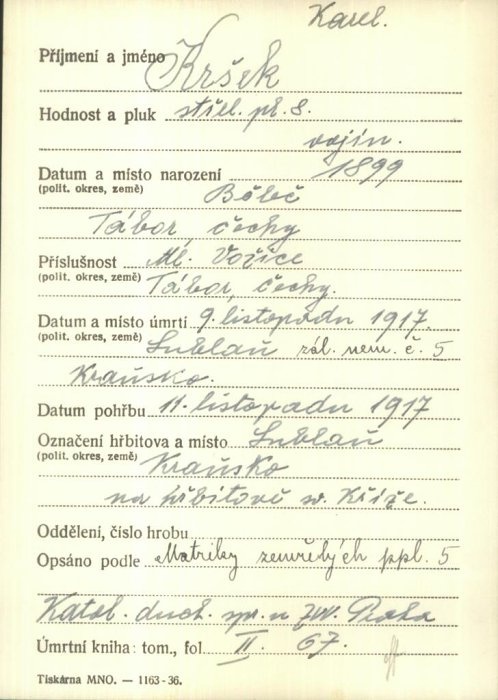 Karel.
Příjmení a jméno Kršek
Hodnost a pluk střel. pl. 8.
vojín.
Datum a místo narození 1899
(polit. okres, země) Běleč
Tábor, čechy
Příslušnost Ml. Vožice
(polit. okres, země) Tábor, čechy.
Datum a místo úmrtí 9. listopadu 1917.
(polit. okres, země) Lublaň zál. nem. č. 5
Kraňsko.
Datum pohřbu 11. listopadu 1917
Označení hřbitova a místo Lublaň
(polit. okres, země) Kraňsko
na hřbitově sv. Kříže.
Oddělení, číslo hrobu
Opsáno podle Matriky zemřelých ppl. 5
Katol. duch. spr. u ZVV. Praha
Úmrtní kniha: tom., fol II. 67.
Tiskárna MNO. — 1163-36.